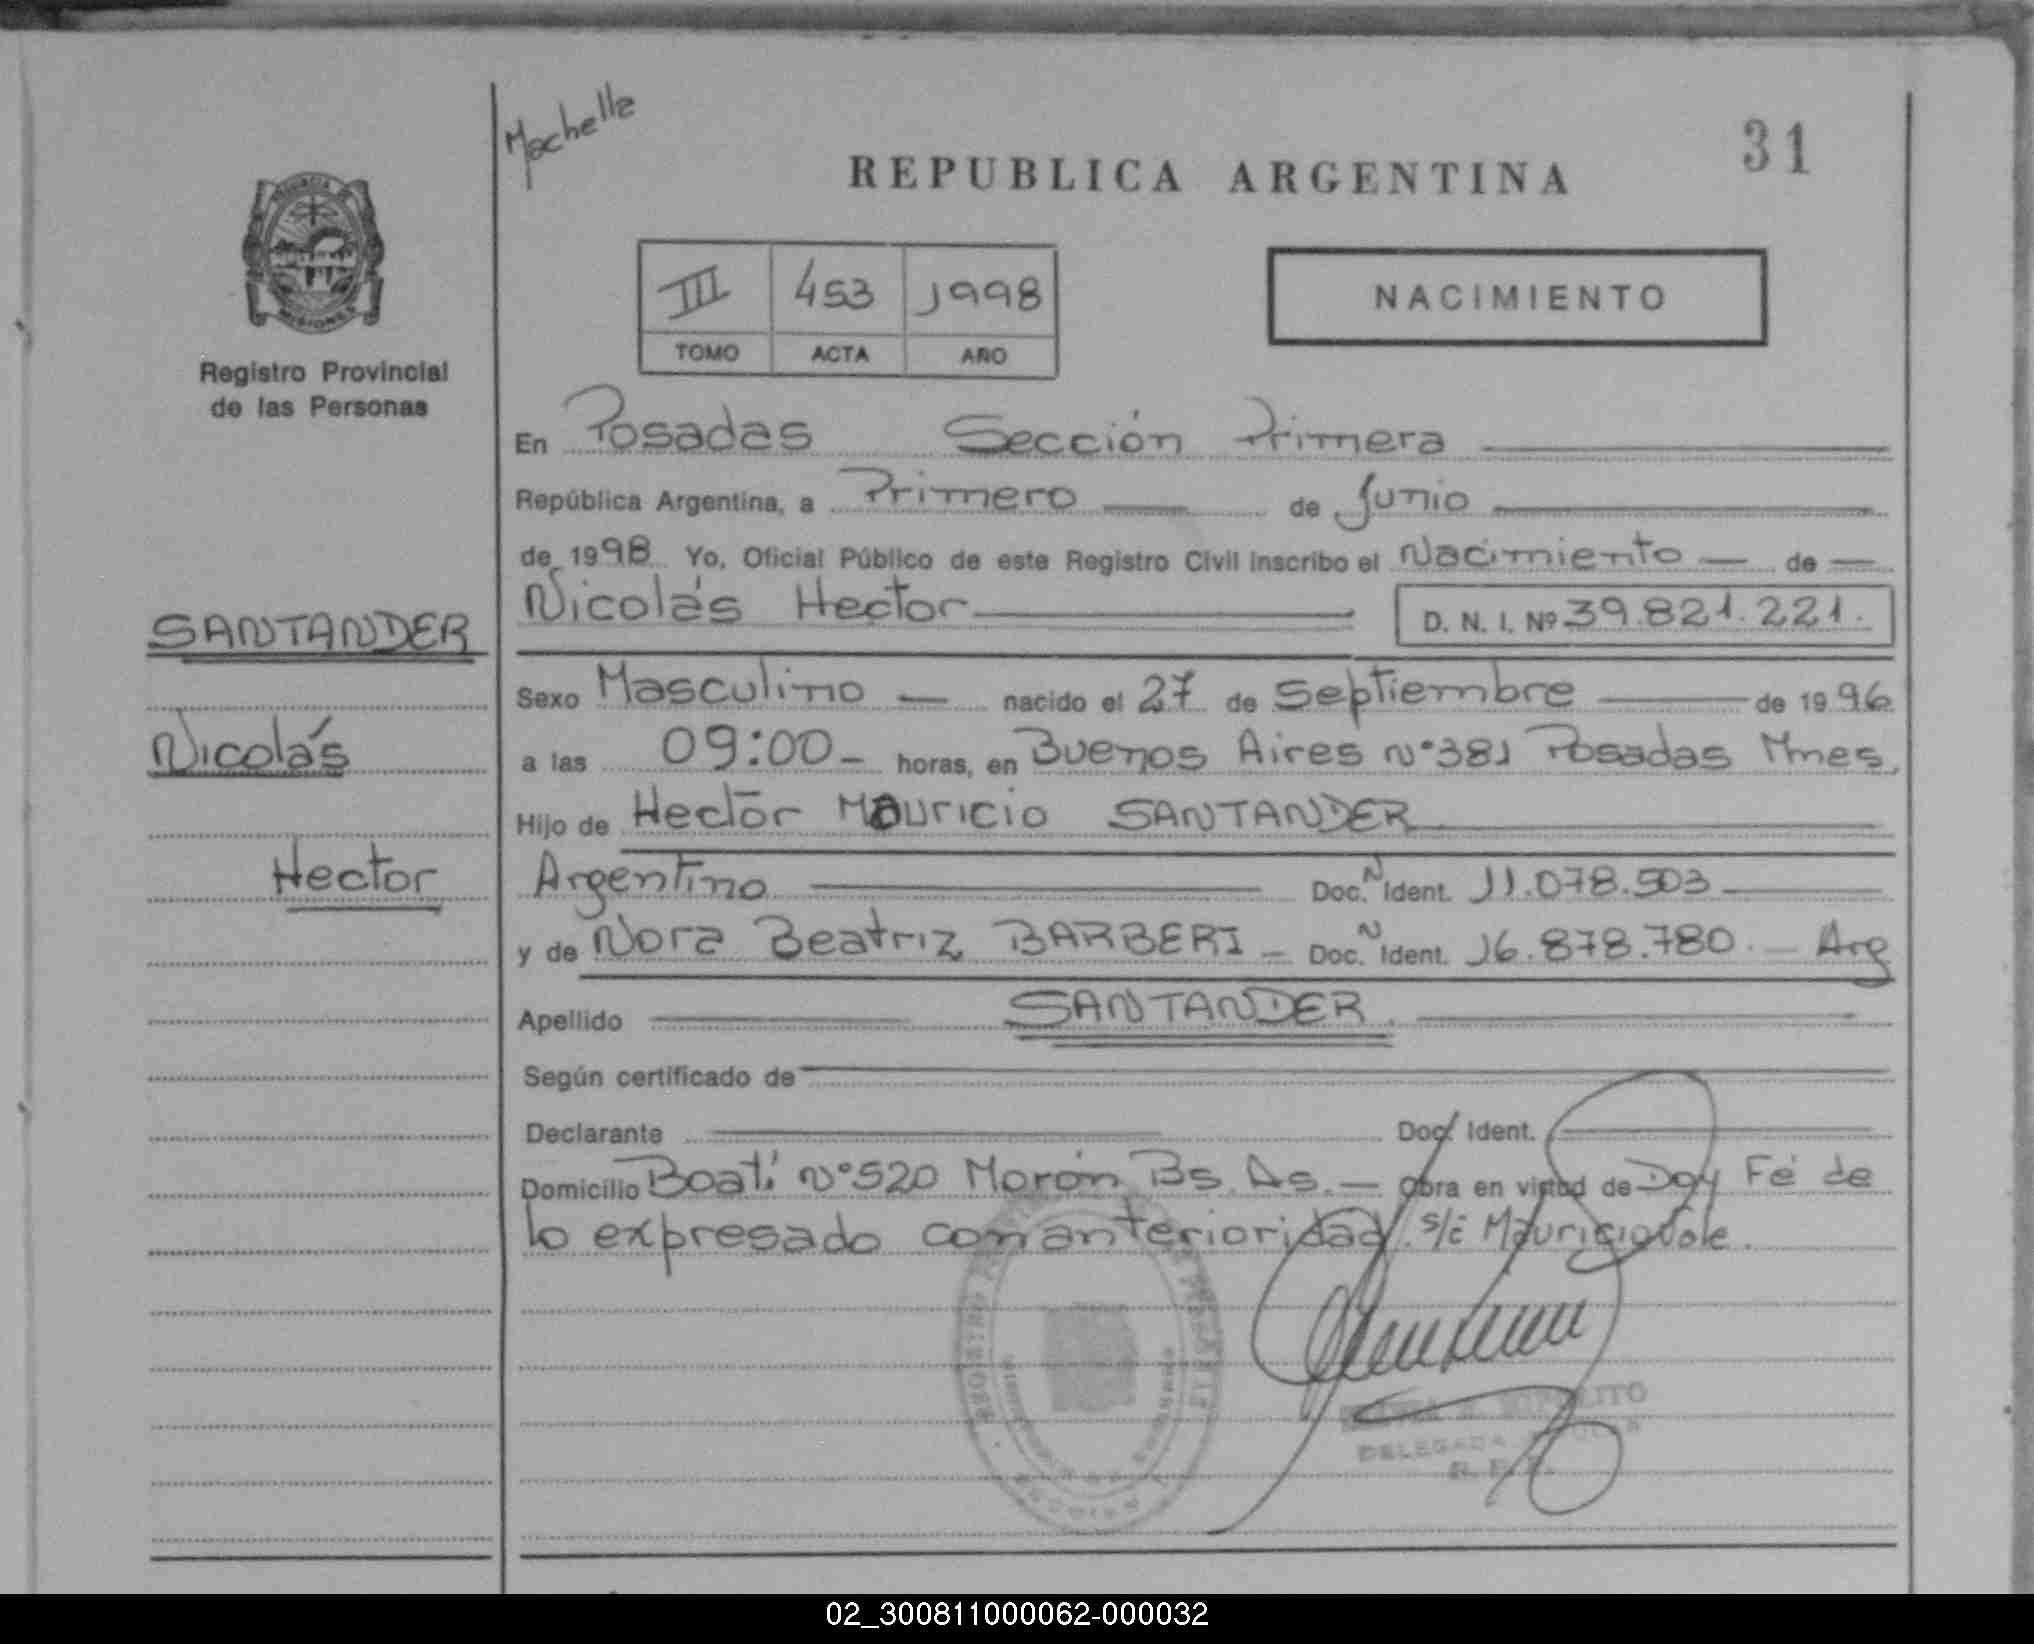 Machelle
31
REPUBLICA ARGENTINA
III 453 1998
TOMO ACTA AÑO
NACIMIENTO
MISIONES
Registro Provincial
de las Personas
En Posadas Sección Primera
República Argentina, a Primero de Junio
de 1998 Yo, Oficial Público de este Registro Civil inscribo el Nacimiento — de —
Nicolás Hector D. N. I. Nº 39.821.221.
SANTANDER
Nicolás
Hector
Sexo Masculino — nacido el 27 de Septiembre de 1996
a las 09:00- horas, en Buenos Aires Nº381 Posadas Mnes.
Hijo de Hector Mauricio SANTANDER
Argentino Doc. N Ident. 11.078.503
y de Nora Beatriz BARBERI — Doc. N Ident. 16.878.780. — Arg
Apellido SANTANDER.
Según certificado de
Declarante Doc. Ident.
Domicilio Boatí Nº520 Morón Bs. As. — Obra en virtud de Doy Fé de
lo expresado con anterioridad. s/c Mauricio Vale.
DELEGADA
02_300811000062-000032